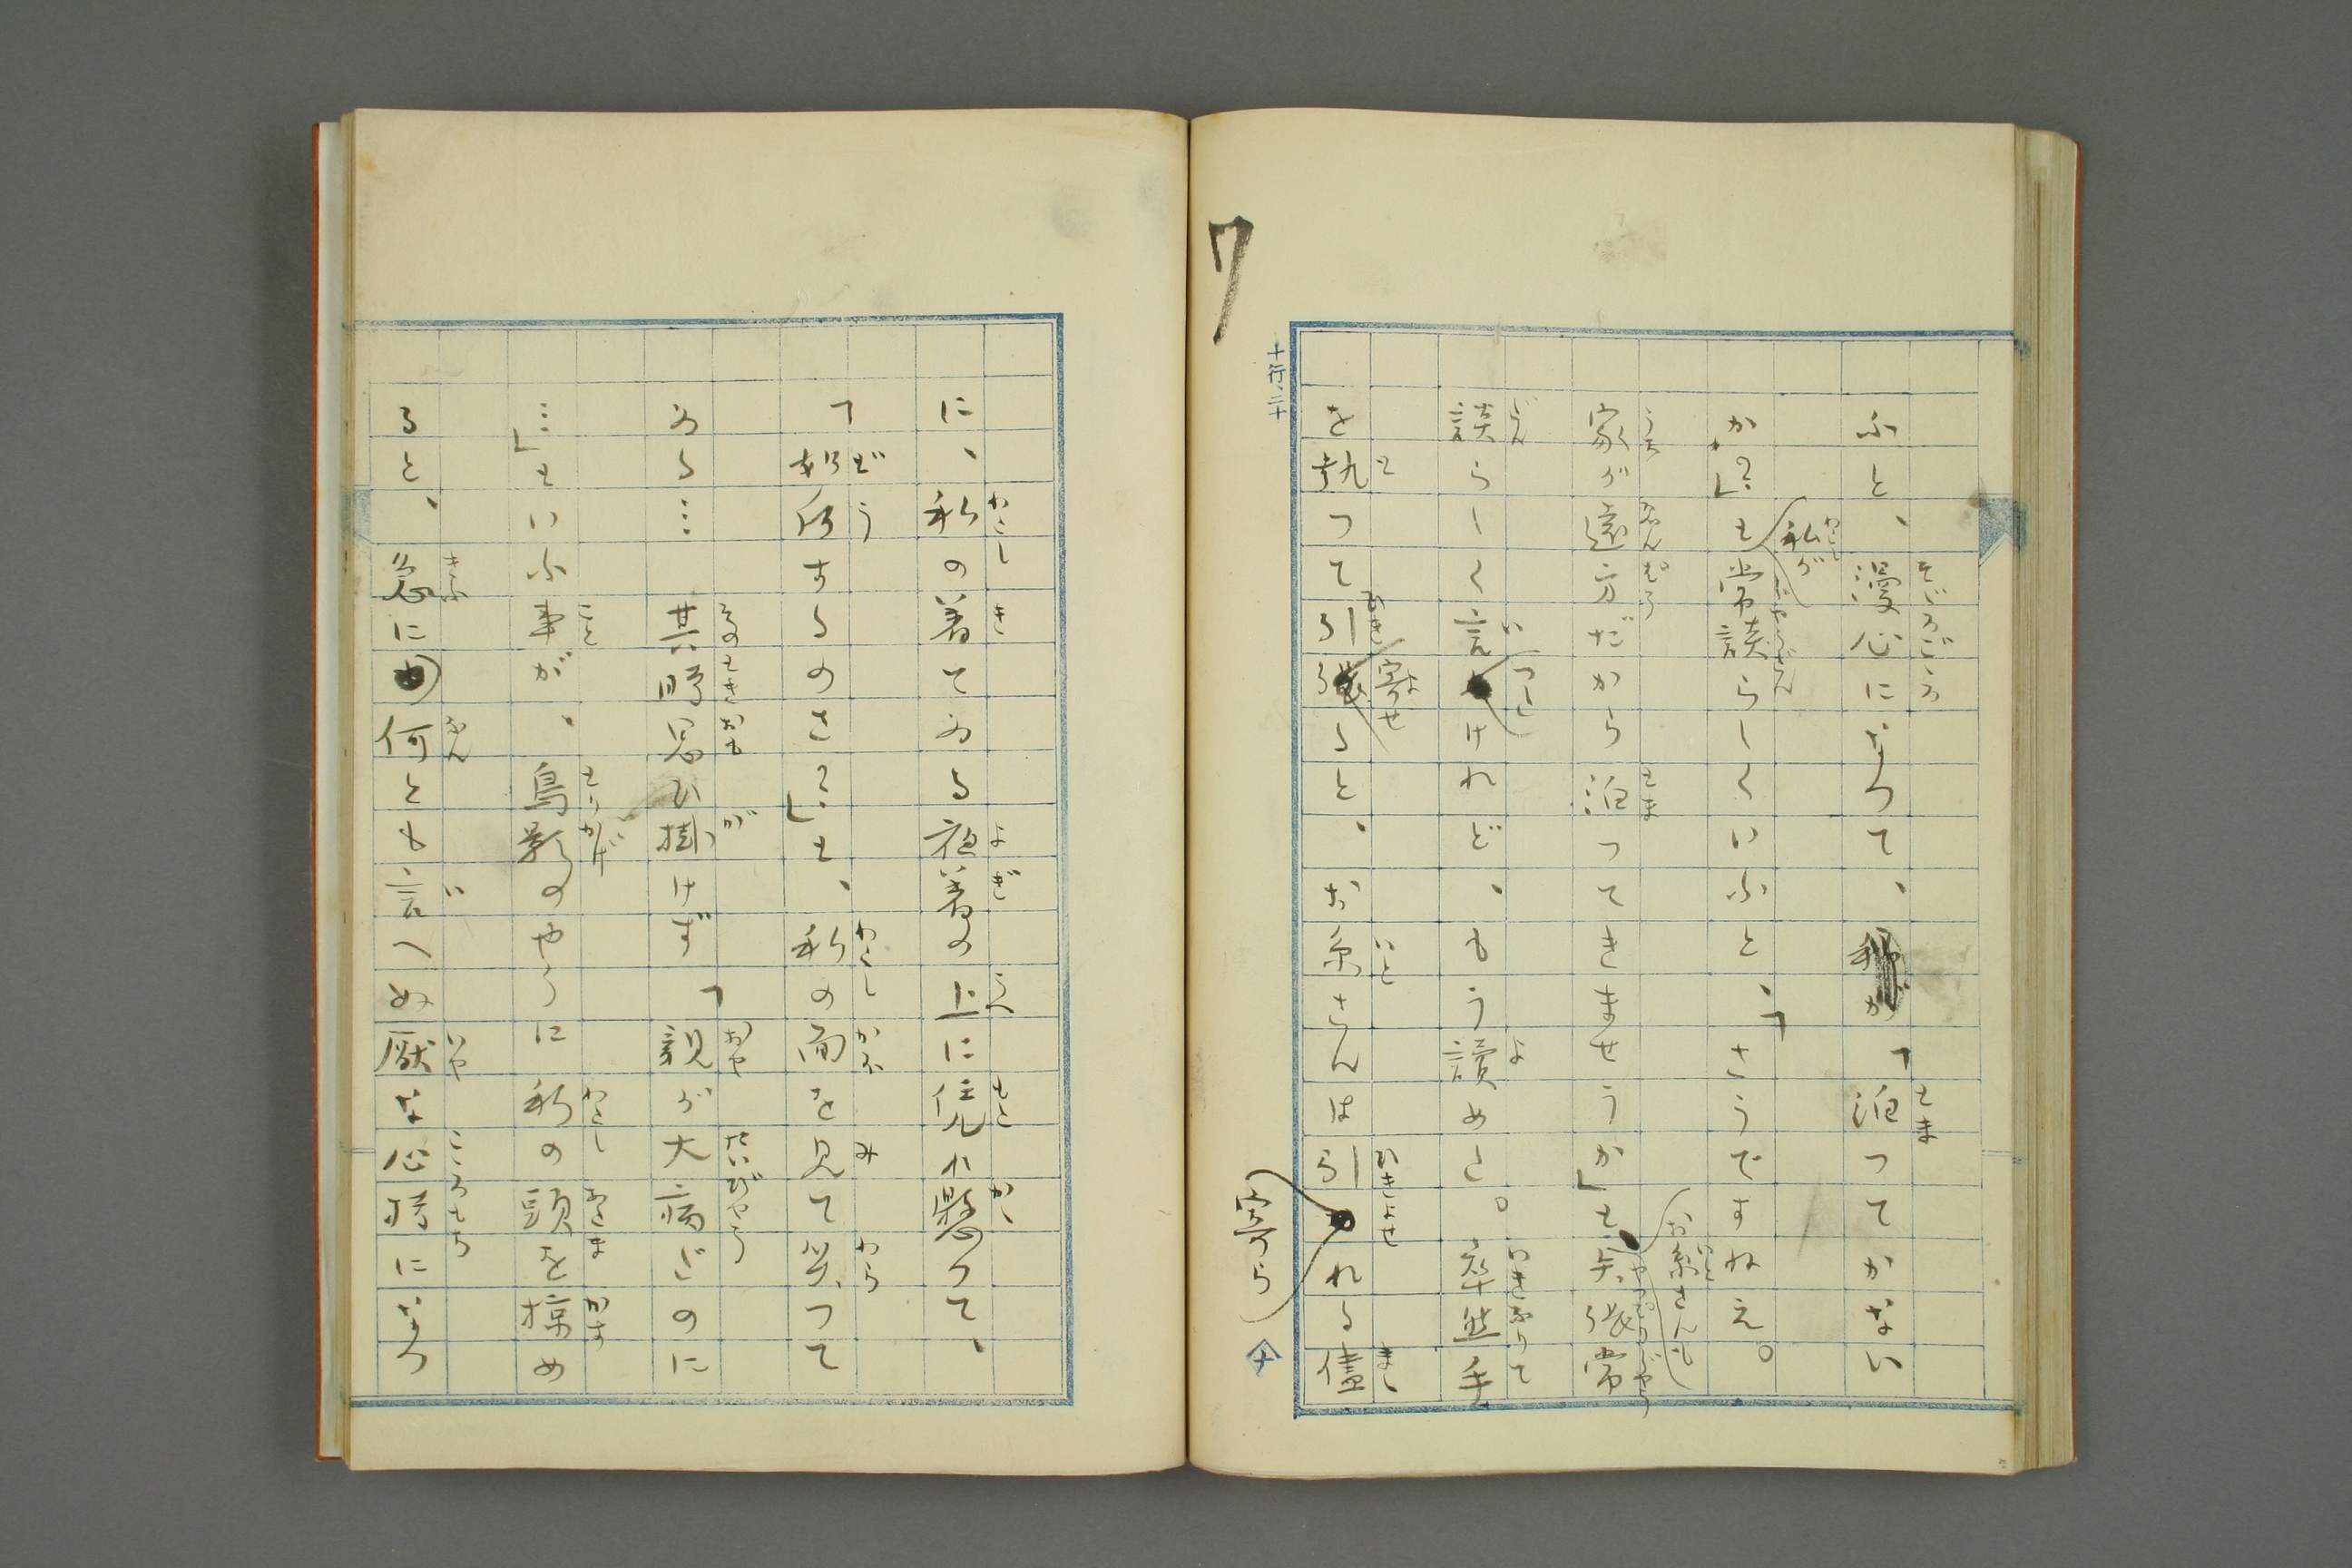 ふと、漫心になつて、「泊つてかない
か?」と私が常談らしくいふと、「さうですねえ。
家が遠方だから泊つてきませうか」とお糸さんも矢張常
談らしく言つたけれど、もう読めた。卒然手
を執つて引寄せると、お糸さんは引寄られる儘
に、私の着てゐる夜着の上に凭れ懸つて、
「如何するのさ?」と、私の面を見て笑つて
ゐる…其時思ひ掛けず「親が大病だのに
…」といふ事が、鳥影のやうに私の頭を掠め
ると、急に何とも言へぬ厭な心持になつ
7
十行、二十